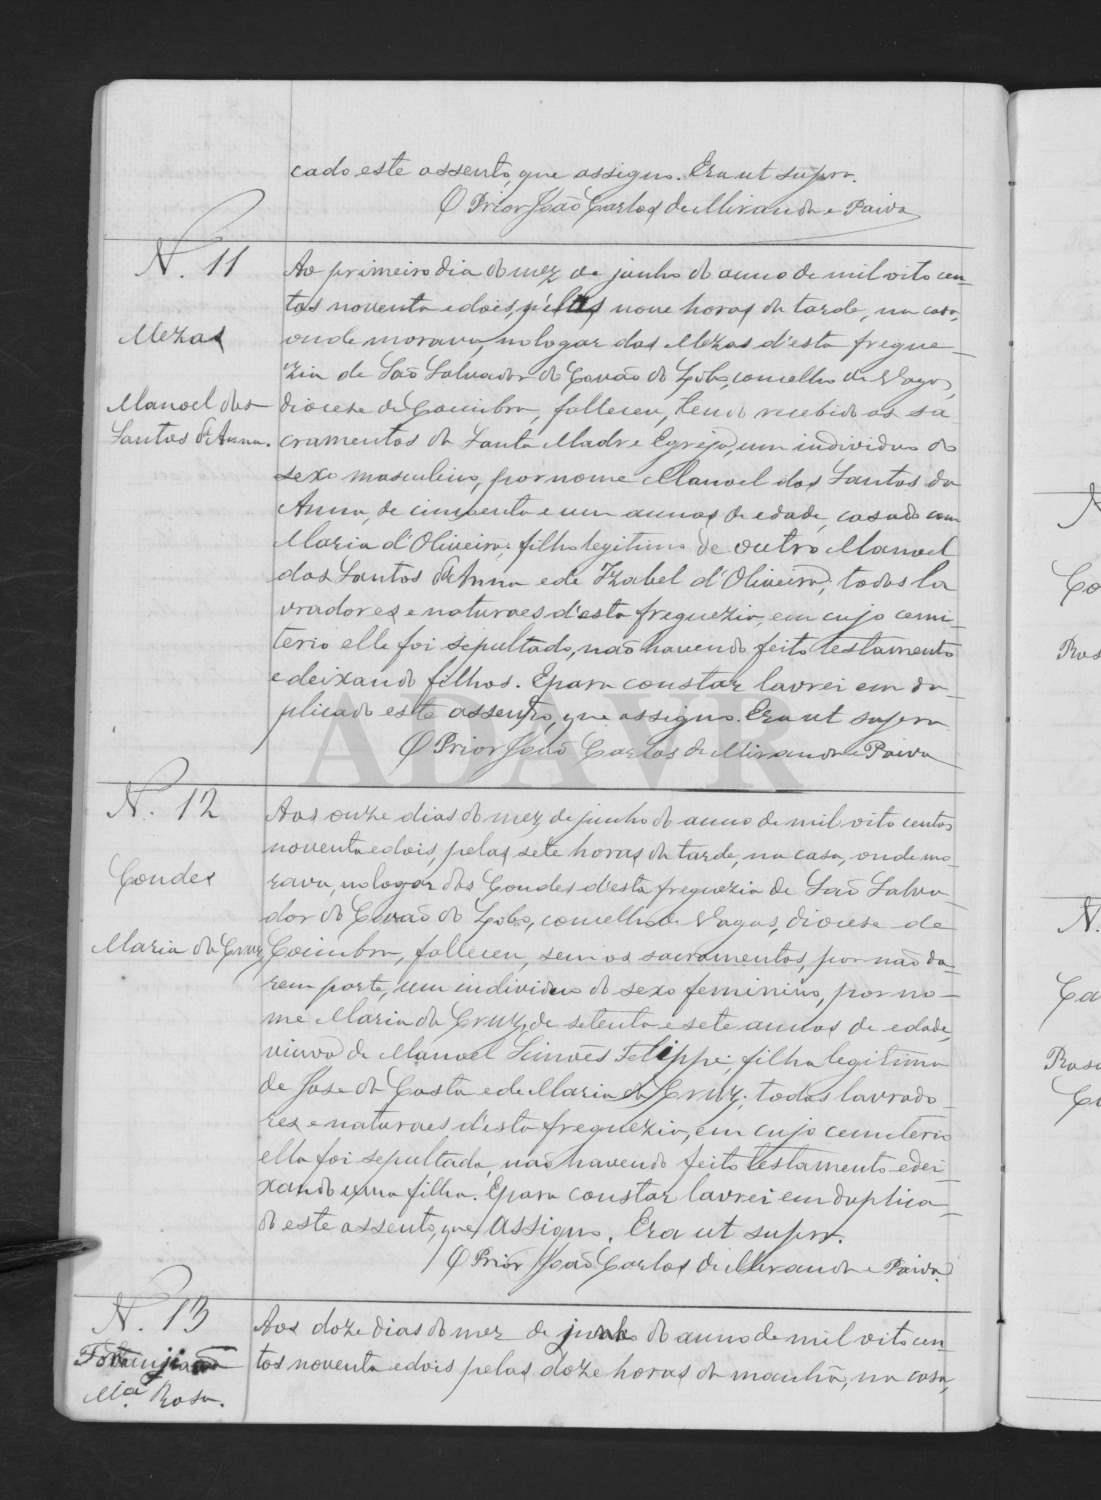 cado este assento, que assigno. Era ut supra.
O Prior João Carlos de Miranda e Paiva
N. 11
Mezas
Manoel dos
Santos d'Anna.
Ao primeiro dia do mez de junho do anno de mil oito cen-
tos noventa e dois, pelas nove horas da tarde, na casa,
onde morava, no logar das Mezas d'esta fregue-
zia de São Salvador do Covão do Lobo, concelho de Vagos,
diocese de Coimbra, falleceu, tendo recebido os sa
cramentos da Santa Madre Egreja, um individuo do
sexo masculino, por nome Manoel dos Santos da
Anna, de cincoenta e um annos de edade, casado com
Maria d'Oliveira, filho legitimo de outro Manoel
dos Santos d'Anna e de Izabel d'Oliveira, todos la
vradores e naturaes d'esta freguezia, em cujo cemi-
terio elle foi sepultado, não havendo feito testamento
e deixando filhos. E para constar lavrei em du-
plicado este assento, que assigno. Era ut supra
O Prior João Carlos de Miranda e Paiva
ADAVR
N. 12
Condes
Maria da Cruz
Aos onze dias do mez de junho do anno de mil oito centos
noventa e dois, pelas sete horas da tarde, na casa, onde mo-
rava, no logar dos Condes d'esta freguezia de São Salva-
dor do Covão do Lobo, concelho de Vagos, diocese de
Coimbra, falleceu, sem os sacramentos, por não da-
rem parte, um individuo do sexo feminino, por no-
me Maria da Cruz, de setenta e sete annos de edade,
viuva de Manoel Simões Felippe, filha legitima
de José da Costa e de Maria da Cruz; todos lavrado-
res e naturaes d'esta freguezia, em cujo cemiterio
ella foi sepultada, não havendo feito testamento e dei-
xando uma filha. E para constar lavrei em duplica-
do este assento, que assigno. Era ut supra.
O Prior João Carlos de Miranda e Paiva
N. 13
M.ª Rosa.
Aos doze dias do mez de junho do anno de mil oito cen-
tos noventa e dois pelas doze horas da manhã, na casa,
N.
Co
Ros
N.
Ca
Rosa